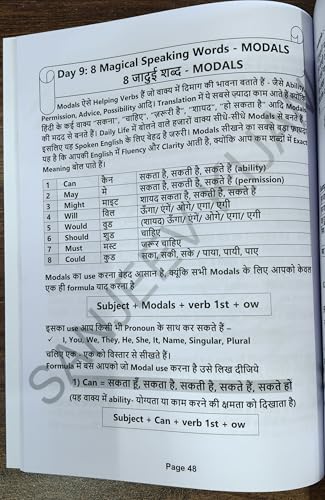 Day 9: 8 Magical Speaking Words - MODALS
8 जादुई शब्द - MODALS
Modals ऐसे Helping Verbs हैं जो वाक्य में दिमाग की भावना बताते हैं - जैसे Ability,
Permission, Advice, Possibility आदि। Translation में ये सबसे ज़्यादा काम आते हैं क्योंकि
हिंदी के कई वाक्य "सकना", "चाहिए", "ज़रूरी है", "शायद", "हो सकता है" आदि Modals
की मदद से बनते हैं। Daily Life में बोलने वाले हजारों वाक्य सीधे-सीधे Modals से बनते हैं,
इसलिए यह Spoken English के लिए बेहद है जरूरी। Modals सीखने का सबसे बड़ा फ़ायदा
यह है कि आपकी English में Fluency और Clarity आती है, क्योंकि आप कम शब्दों में Exact
Meaning बोल पाते हैं।
1 Can कैन सकता है, सकती है, सकते हैं (ability)
2 May मे सकता है, सकती है, सकते हैं (permission)
3 Might माइट शायद सकता है, सकती है, सकते हैं
4 Will विल ऊँगा/ एगें/ ओगे/ एगा/ एगी
5 Would वुड (शायद) ऊँगा/ एगें/ ओगे/ एगा/ एगी
6 Should शुड चाहिए
7 Must मस्ट जरूर चाहिए
8 Could कुड सका, सकी, सके / पाया, पायी, पाए
Modals का use करना बेहद आसान है, क्यूंकि सभी Modals के लिए आपको केवल
एक ही formula याद करना है
Subject + Modals + verb 1st + ow
इसका use आप किसी भी Pronoun के साथ कर सकते हैं –
✓ I, You, We, They, He, She, It, Name, Singular, Plural
चलिए एक - एक को विस्तार से सीखते हैं।
Formula में बस आपको जो Modal use करना है उसे लिख दीजिये
1) Can = सकता हूँ, सकता है, सकती है, सकते हैं, सकते हो
(यह वाक्य में ability- योग्यता या काम करने की क्षमता को दिखाता है)
Subject + Can + verb 1st + ow
Page 48